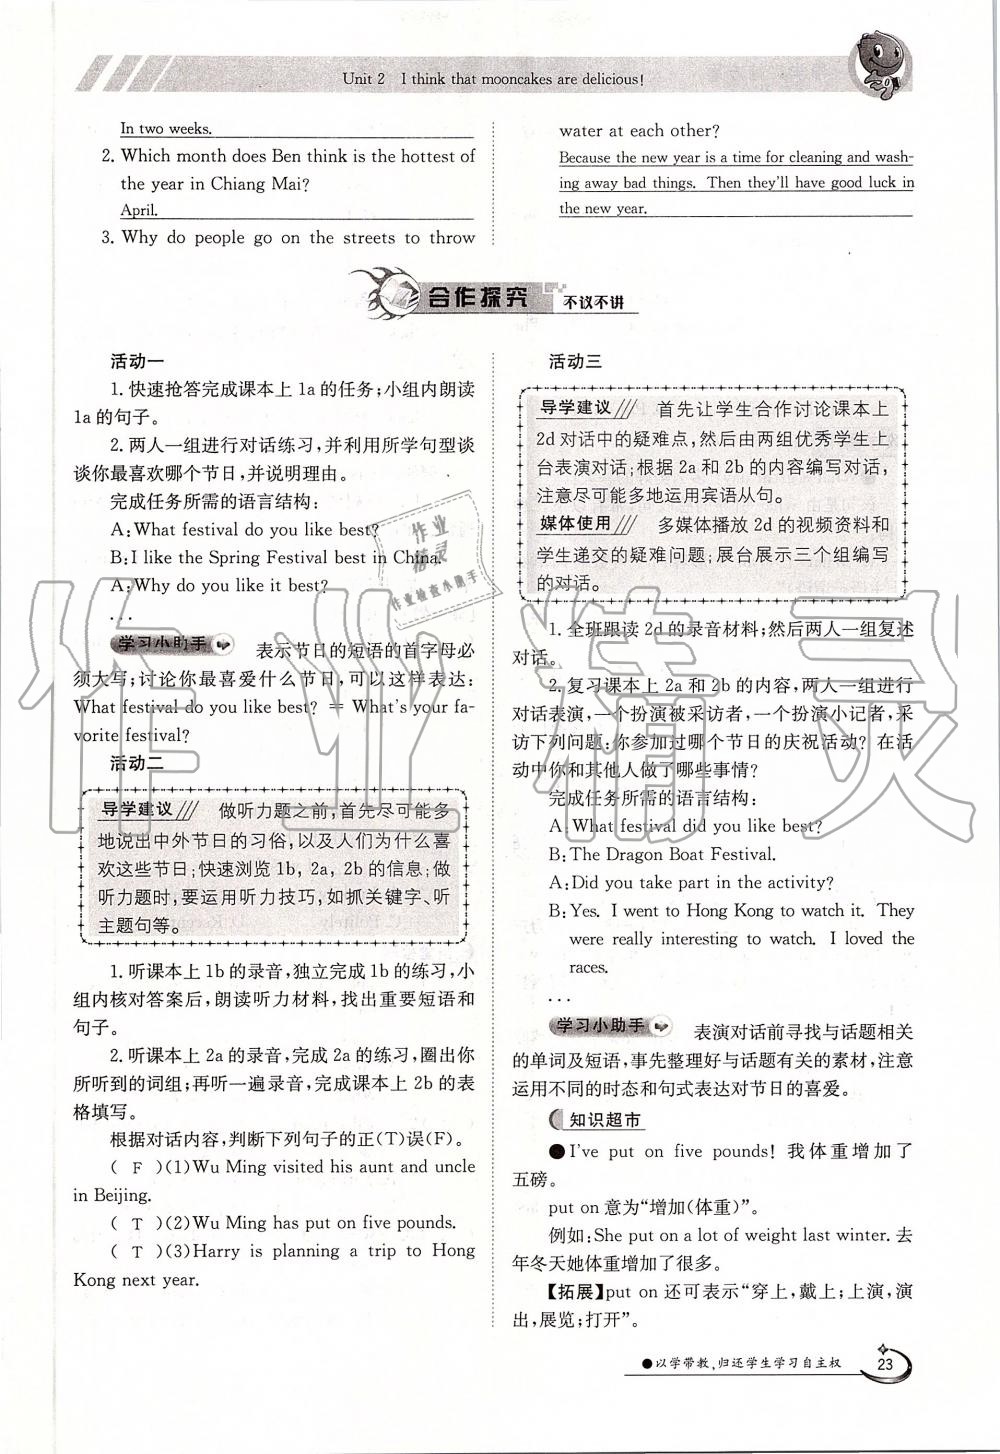 Unit 2 I think that mooncakes are delicious!
In two weeks.
2. Which month does Ben think is the hottest of
the year in Chiang Mai?
April.
3. Why do people go on the streets to throw
water at each other?
Because the new year is a time for cleaning and wash-
ing away bad things. Then they'll have good luck in
the new year.
合作探究 不议不讲
活动一
1. 快速抢答完成课本上 1a 的任务;小组内朗读
1a 的句子。
2. 两人一组进行对话练习,并利用所学句型谈
谈你最喜欢哪个节日,并说明理由。
完成任务所需的语言结构:
A: What festival do you like best?
B: I like the Spring Festival best in China.
A: Why do you like it best?
...
学习小助手 表示节日的短语的首字母必
须大写;讨论你最喜爱什么节日,可以这样表达:
What festival do you like best? = What's your fa-
vorite festival?
活动二
导学建议/// 做听力题之前,首先尽可能多
地说出中外节日的习俗,以及人们为什么喜
欢这些节日;快速浏览 1b, 2a, 2b 的信息;做
听力题时,要运用听力技巧,如抓关键字、听
主题句等。
1. 听课本上 1b 的录音,独立完成 1b 的练习,小
组内核对答案后,朗读听力材料,找出重要短语和
句子。
2. 听课本上 2a 的录音,完成 2a 的练习,圈出你
所听到的词组;再听一遍录音,完成课本上 2b 的表
格填写。
根据对话内容,判断下列句子的正(T)误(F)。
( F )(1) Wu Ming visited his aunt and uncle
in Beijing.
( T )(2) Wu Ming has put on five pounds.
( T )(3) Harry is planning a trip to Hong
Kong next year.
活动三
导学建议/// 首先让学生合作讨论课本上
2d 对话中的疑难点,然后由两组优秀学生上
台表演对话;根据 2a 和 2b 的内容编写对话,
注意尽可能多地运用宾语从句。
媒体使用/// 多媒体播放 2d 的视频资料和
学生递交的疑难问题;展台展示三个组编写
的对话。
1. 全班跟读 2d 的录音材料;然后两人一组复述
对话。
2. 复习课本上 2a 和 2b 的内容,两人一组进行
对话表演,一个扮演被采访者,一个扮演小记者,采
访下列问题:你参加过哪个节日的庆祝活动? 在活
动中你和其他人做了哪些事情?
完成任务所需的语言结构:
A: What festival did you like best?
B: The Dragon Boat Festival.
A: Did you take part in the activity?
B: Yes. I went to Hong Kong to watch it. They
were really interesting to watch. I loved the
races.
...
学习小助手 表演对话前寻找与话题相关
的单词及短语,事先整理好与话题有关的素材,注意
运用不同的时态和句式表达对节日的喜爱。
知识超市
●I've put on five pounds! 我体重增加了
五磅。
put on 意为“增加(体重)”。
例如:She put on a lot of weight last winter. 去
年冬天她体重增加了很多。
【拓展】put on 还可表示“穿上,戴上;上演,演
出,展览;打开”。
●以学带教,归还学生学习自主权 23
作业
精灵
作业检查小助手
作业精灵